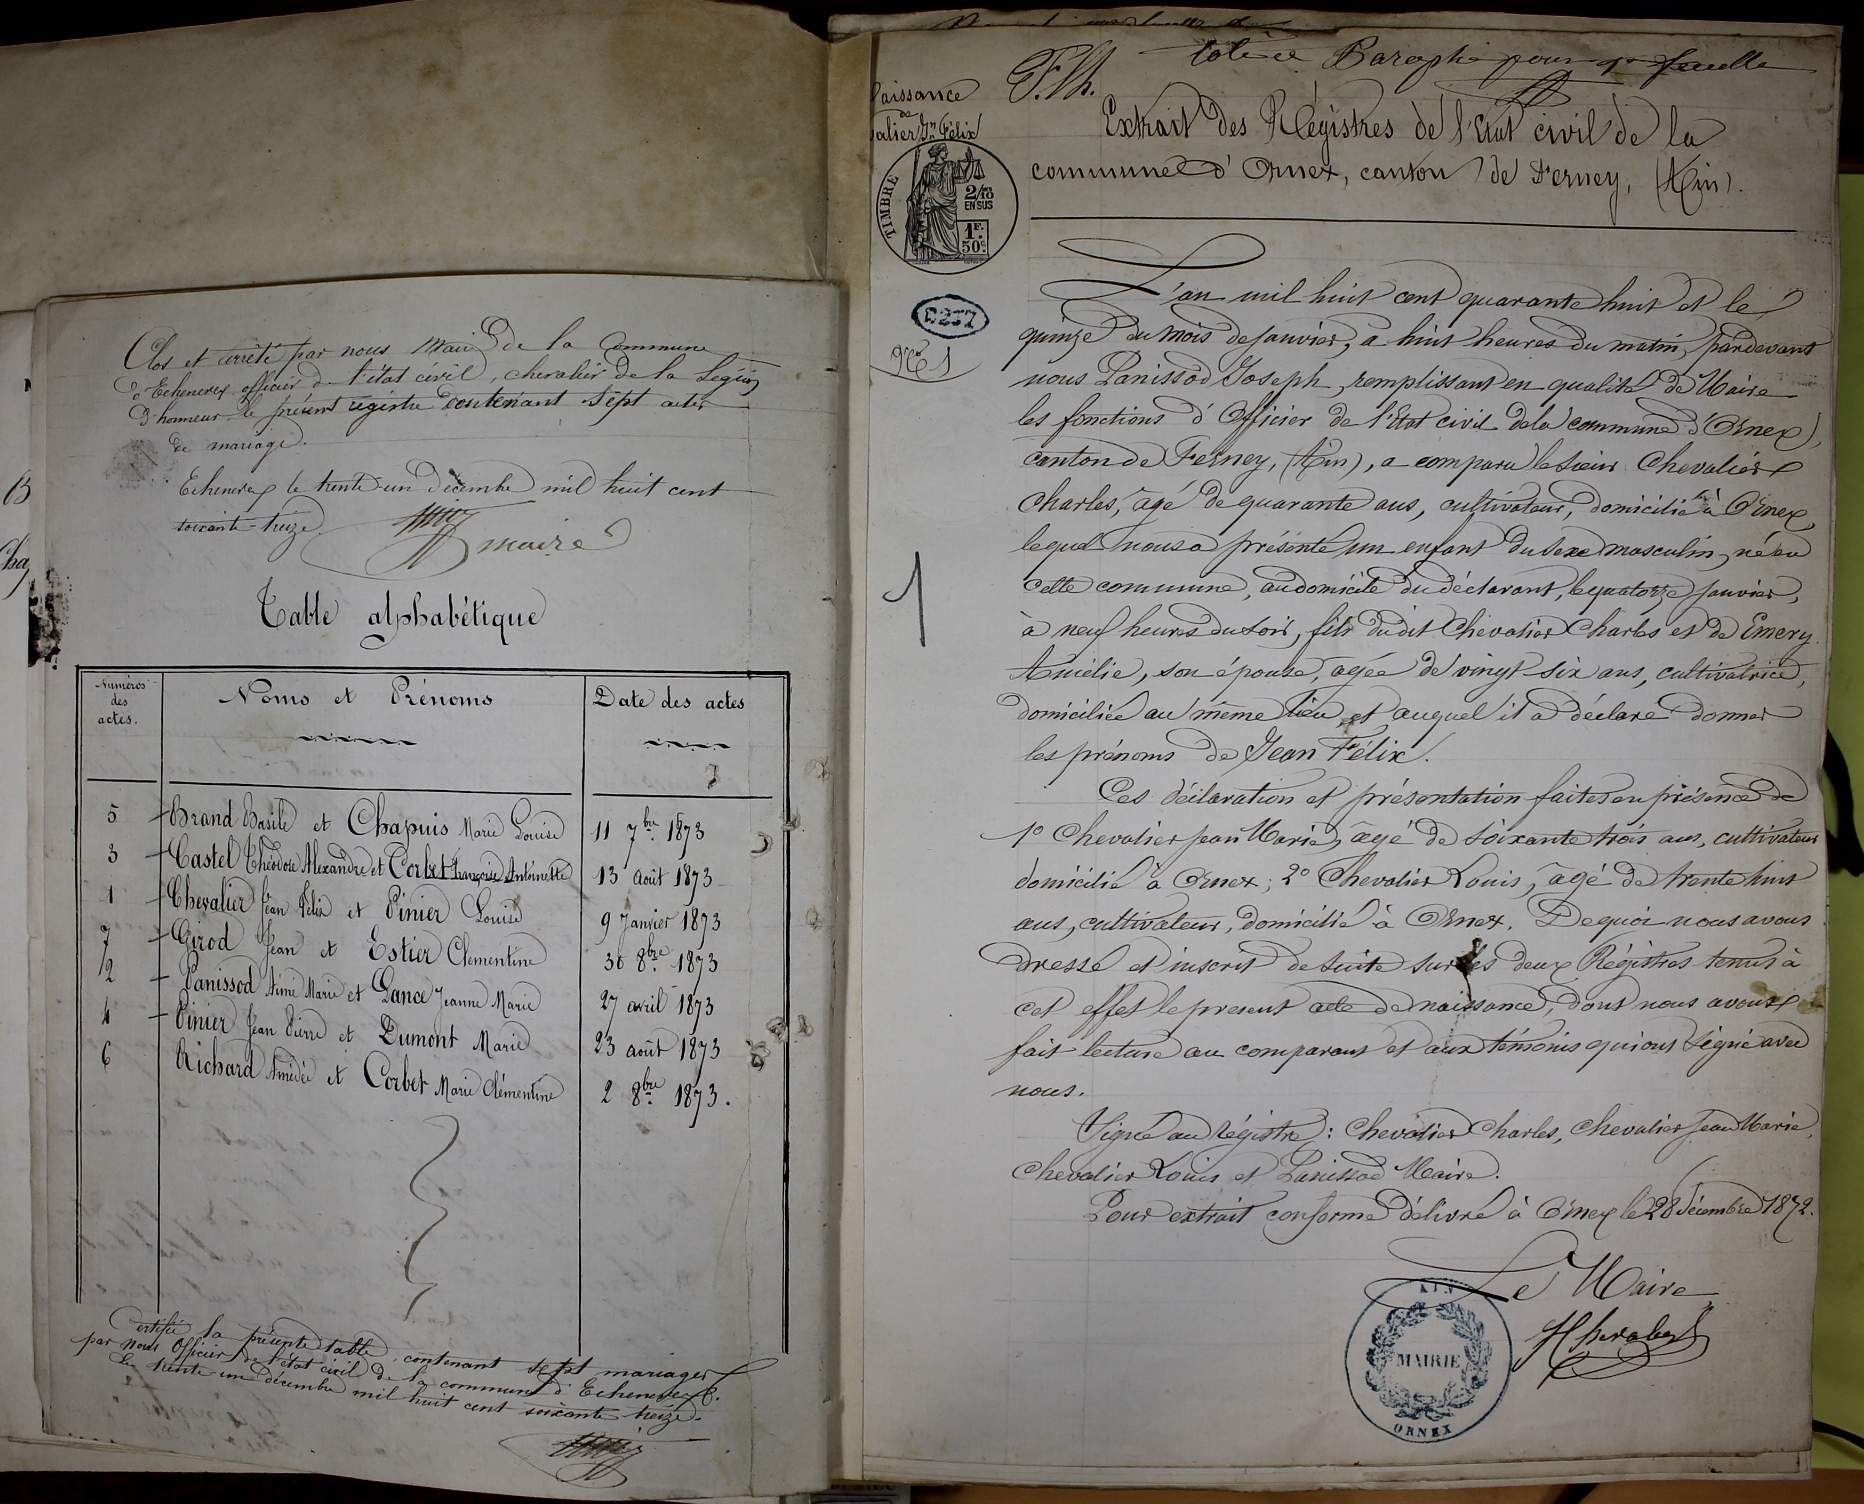 Clos et arrêté par nous Maire de la Commune
d'Echenevex officier de l'état civil, chevalier de la Légion
d'honneur le présent registre contenant sept actes
de mariage.
Echenevex le trente un décembre mil huit cent
soixante-treize
maire
Table alphabétique
Numéros des actes. Noms et Prénoms Date des actes
5 Brand Basile et Chapuis Marie Louise 11 7bre 1873
3 Castel Théodore Alexandre et Corbet Françoise Antoinette 13 août 1873
1 Chevalier Jean Félix et Pinier Louise 9 Janvier 1873
7 Girod Jean et Estier Clementine 30 8bre 1873
2 Panissod Aimé Marie et Lance Jeanne Marie 27 avril 1873
4 Pinier Jean Pierre et Dumont Marie 23 août 1873
6 Richard Amédée et Corbet Marie Clémentine 2 8bre 1873.
Certifié la présente table, contenant sept mariages
par nous Officier de l'état civil de la commune d'Echenevex.
Le trente un décembre mil huit cent soixante treize.
Paraphé pour feuille
Naissance
de
valier Jn Félix
TIMBRE
2/10
EN SUS
1F.
50c.
Extrait des Régistres de l'Etat civil de la
commune d'Ornex, canton de Ferney, (Ain).
No 1
1
L'an mil huit cent quarante huit et le
quinze du mois de janvier, à huit heures du matin, pardevant
nous Panissod Joseph, remplissant en qualité de Maire
les fonctions d'Officier de l'Etat civil de la commune d'Ornex,
canton de Ferney, (Ain), a comparu le sieur Chevalier
Charles, âgé de quarante ans, cultivateur, domicilié à Ornex,
lequel nous a présenté un enfant du sexe masculin, né en
cette commune, au domicile du déclarant, le quatorze janvier,
à neuf heures du soir, fils dudit Chevalier Charles et de Emery
Amélie, son épouse, agée de vingt six ans, cultivatrice,
domiciliée au même lieu et auquel il a déclaré donner
les prénoms de Jean Félix.
Ces déclaration et présentation faites en présence de
1o Chevalier Jean Marie, âgé de soixante trois ans, cultivateur
domicilié à Ornex; 2o Chevalier Louis, âgé de trente huit
ans, cultivateur, domicilié à Ornex. De quoi nous avons
dressé et inscrit de suite sur les deux Régistres tenus à
cet effet le present acte de naissance, dont nous avons
fait lecture au comparant et aux témoins qui ont signé avec
nous.
Signé au régistre: Chevalier Charles, Chevalier Jean Marie,
Chevalier Louis et Panissod Maire.
Pour extrait conforme délivré à Ornex le 28 décembre 1872.
Le Maire
AIN
MAIRIE
ORNEX